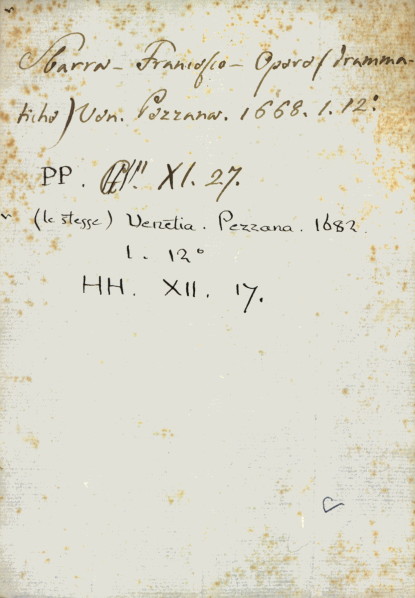 Sbarra - Francesco - Opere (dramma-
tiche) Ven. Pezzana. 1668. 1. 12°.
PP. XI. 27.
(le stesse) Venetia. Pezzana. 1682.
1. 12°
HH. XII. 17.